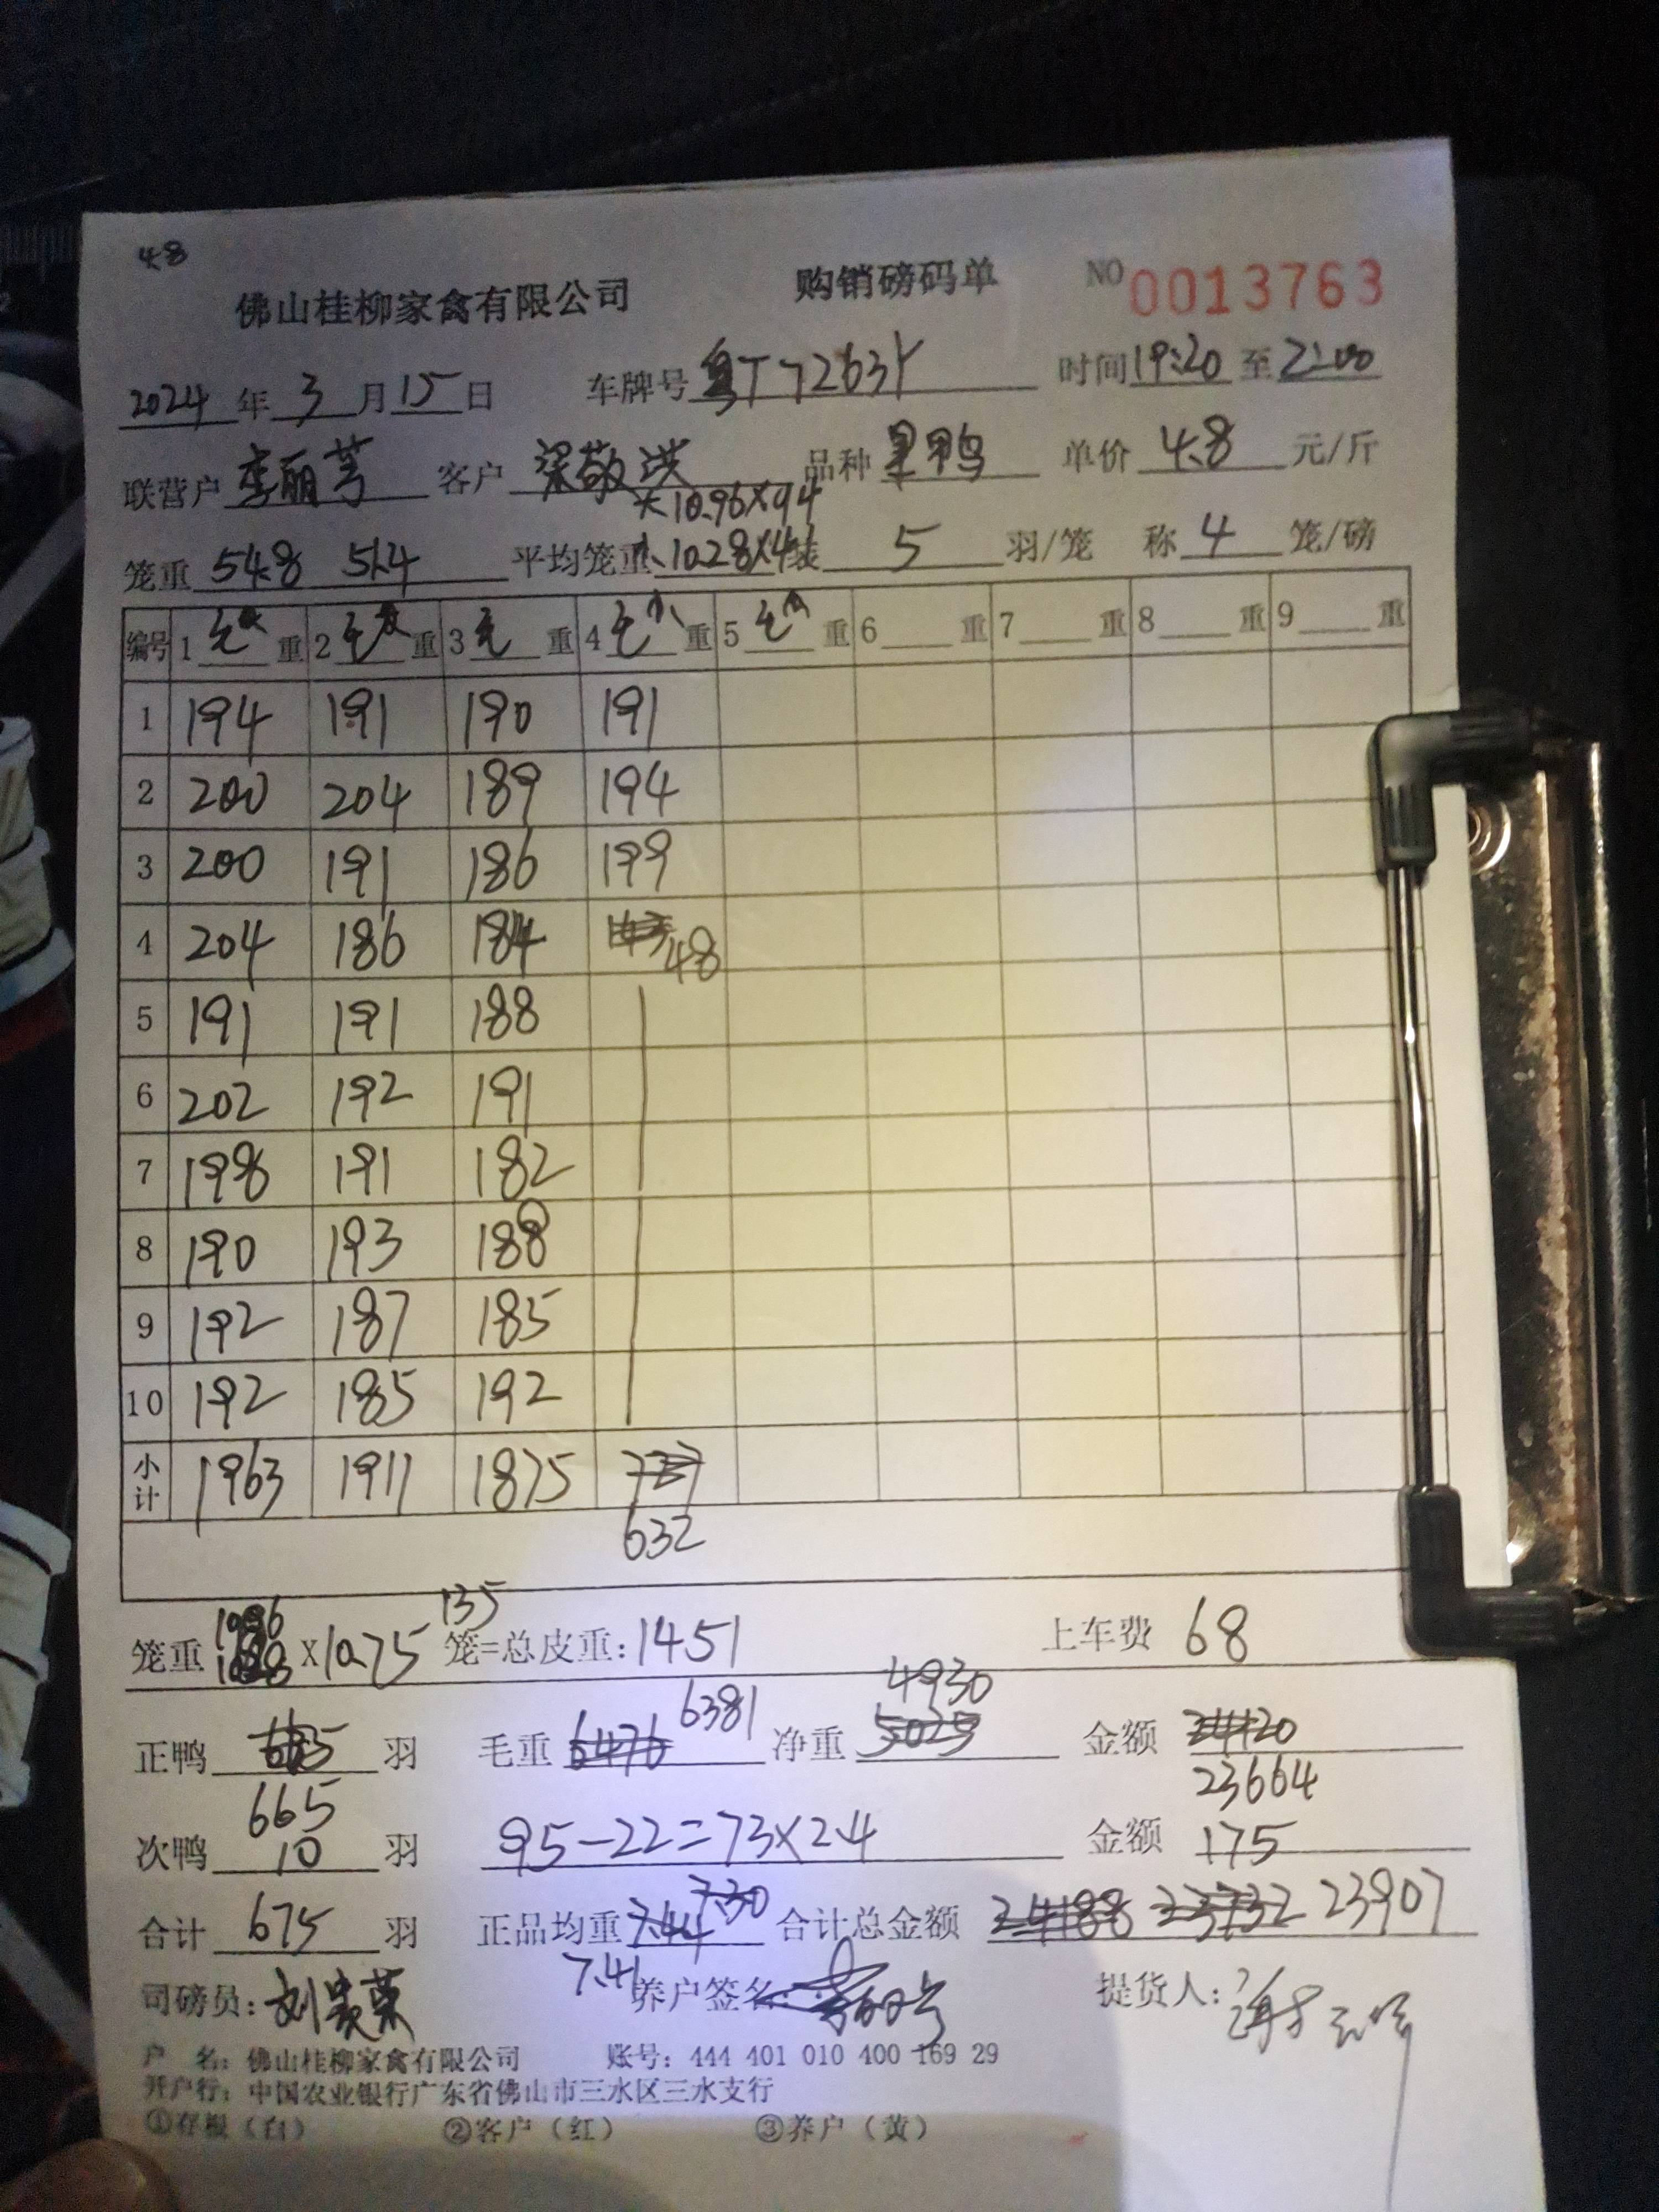 4.8
佛山桂柳家禽有限公司 购销磅码单 NO 0013763
2024 年 3 月 15 日 车牌号 粤T7263Y 时间 19:20 至 22:00
联营户 李丽芎 客户 梁敬洪 品种 果鸭 单价 4.8 元/斤
大10.96×94
笼重 54.8 51.4 平均笼重 小10.28×41 装 5 羽/笼 称 4 笼/磅
编号 1 毛大 重 2 毛大 重 3 毛 重 4 毛小 重 5 毛 重 6 重 7 重 8 重 9 重
1 194 191 190 191
2 200 204 189 194
3 200 191 186 199
4 204 186 184 48
5 191 191 188
6 202 192 191
7 198 191 182
8 190 193 188
9 192 187 185
10 192 185 192
小计 1963 1911 1875
632
笼重 1096 1028 ×10.75 135 笼=总皮重: 1451 上车费 68
正鸭 665 羽 毛重 6476 6381 净重 5025 4930 金额 24120
23664
次鸭 10 羽 95-22=73×2.4 金额 175
合计 675 羽 正品均重 7.44 7.30 合计总金额 24188 23732 23907
7.41
司磅员: 养户签名: 提货人:
户 名: 佛山桂柳家禽有限公司 账号: 444 401 010 400 169 29
开户行: 中国农业银行广东省佛山市三水区三水支行
①存根(白) ②客户(红) ③养户(黄)